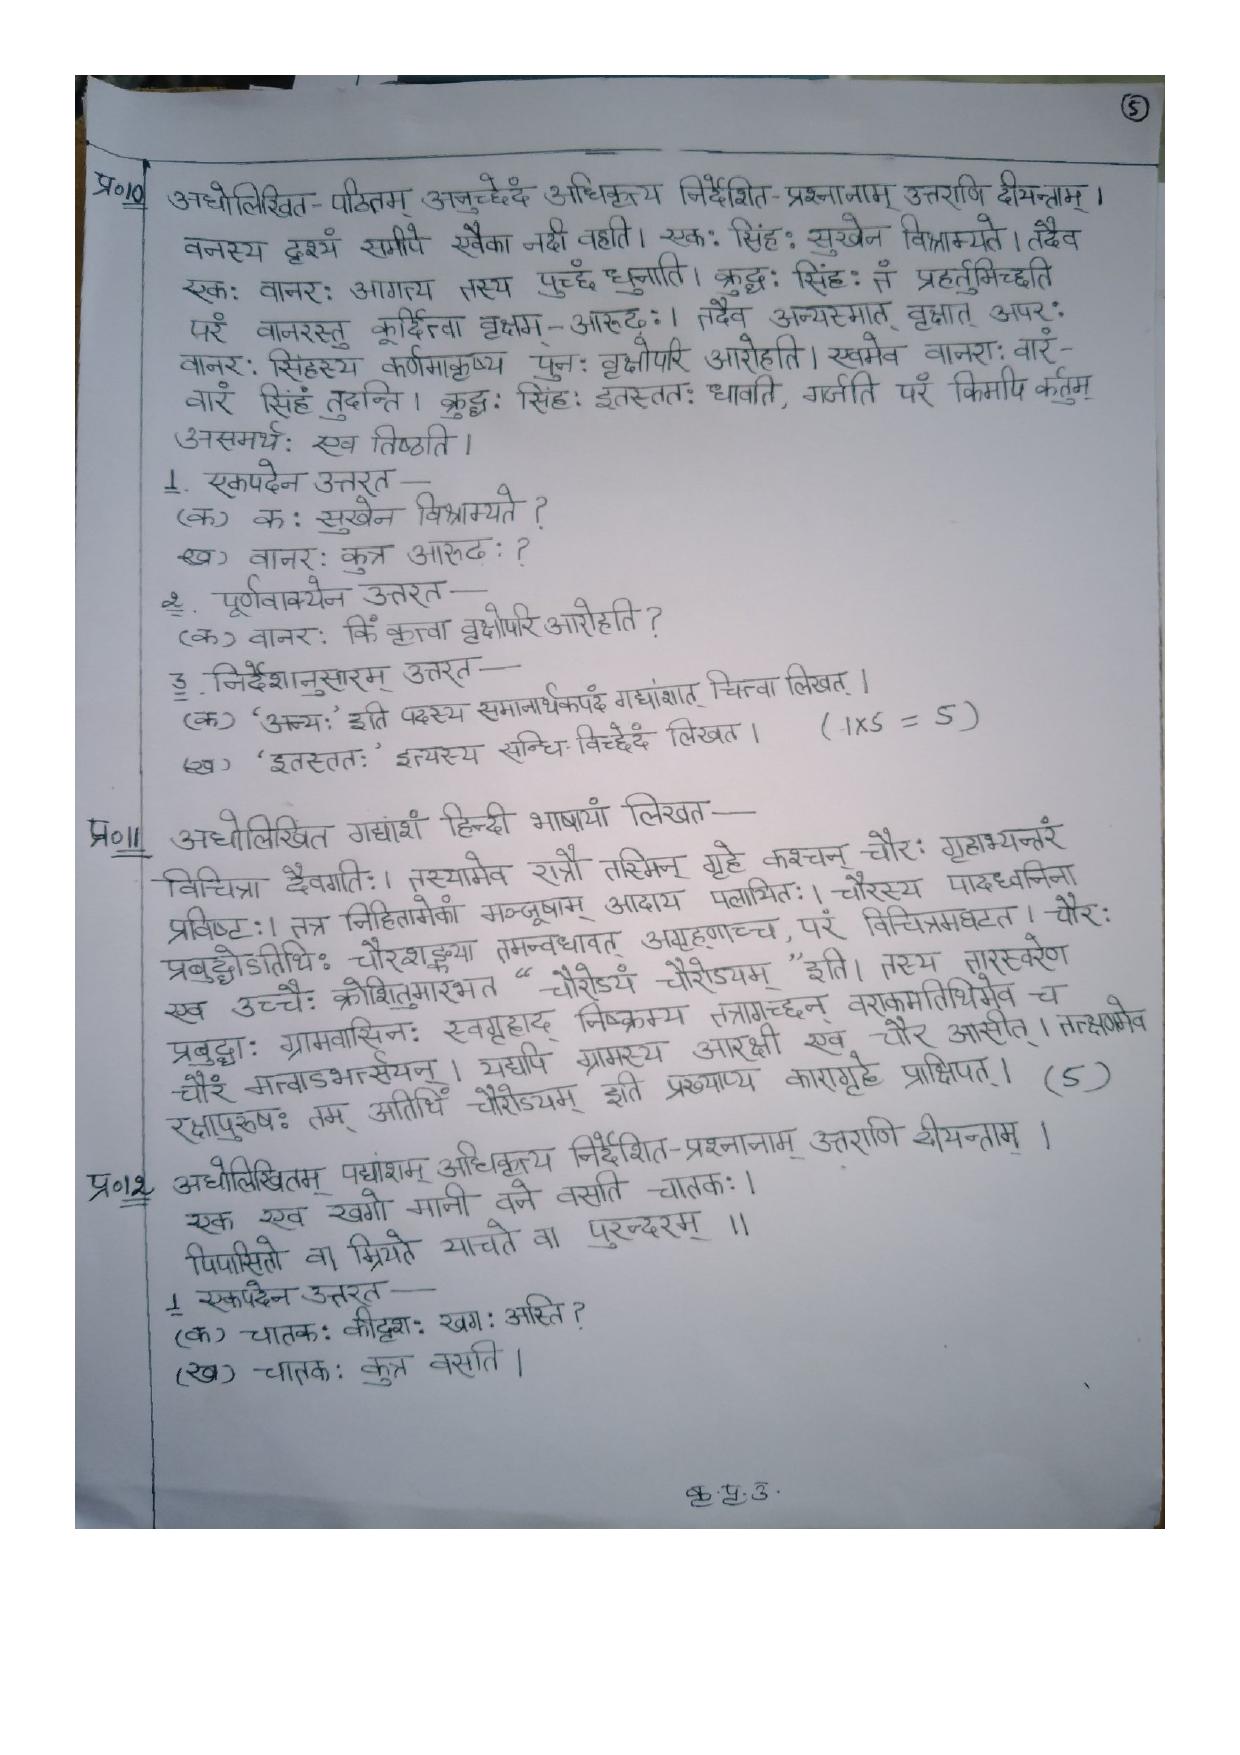 5
प्र०10 अधोलिखित-पठितम् अनुच्छेदं अधिकृत्य निर्देशित-प्रश्नानाम् उत्तराणि दीयन्ताम् ।
वनस्य दृश्यं समीपे एवैका नदी वहति। एक: सिंह: सुखेन विश्राम्यते । तदैव
एक: वानर: आगत्य तस्य पुच्छं धुनाति। क्रुद्ध: सिंह: तं प्रहर्तुमिच्छति
परं वानरस्तु कूर्दित्वा वृक्षम्-आरूढ़:। तदैव अन्यस्मात् वृक्षात् अपर:
वानर: सिंहस्य कर्णमाकृष्य पुन: वृक्षोपरि आरोहति । एवमेव वानरा: वारं-
वारं सिंहं तुदन्ति । क्रुद्ध: सिंह: इतस्तत: धावति, गर्जति परं किमपि कर्तुम्
असमर्थ: एव तिष्ठति ।
1. एकपदेन उत्तरत —
(क) क: सुखेन विश्राम्यते ?
(ख) वानर: कुत्र आरूढ: ?
2. पूर्णवाक्येन उत्तरत—
(क) वानर: किं कृत्वा वृक्षोपरि आरोहति ?
3. निर्देशानुसारम् उत्तरत—
(क) 'अन्य:' इति पदस्य समानार्थकपदं गद्यांशात् चित्वा लिखत् ।
(ख) 'इतस्तत:' इत्यस्य सन्धि-विच्छेदं लिखत । (1x5 = 5)
प्र०11 अधोलिखित गद्यांशं हिन्दी भाषायां लिखत—
विचित्रा दैवगति:। तस्यामेव रात्रौ तस्मिन् गृहे कश्चन् चौर: गृहाभ्यन्तरं
प्रविष्ट:। तत्र निहितामेकां मञ्जूषाम् आदाय पलायित:। चौरस्य पादध्वनिना
प्रबुद्धोऽतिथि: चौरशङ्कया तमन्वधावत् अगृह्णाच्च, परं विचित्रमघटत । चौर:
एव उच्चै: क्रोशितुमारभत "चौरोऽयं चौरोऽयम्" इति। तस्य तारस्वरेण
प्रबुद्धा: ग्रामवासिन: स्वगृहाद् निष्क्रम्य तत्रागच्छन् वराकमतिथिमेव च
चौरं मत्वाऽभर्त्सयन् । यद्यपि ग्रामस्य आरक्षी एव चौर आसीत् । तत्क्षणमेव
रक्षापुरुष: तम् अतिथिं चौरोऽयम् इति प्रख्याप्य कारागृहे प्राक्षिपत् । (5)
प्र०12 अधोलिखितम् पद्यांशम् अधिकृत्य निर्देशित-प्रश्नानाम् उत्तराणि दीयन्ताम् ।
एक एव खगो मानी वने वसति चातक:।
पिपासितो वा म्रियते याचते वा पुरन्दरम् ।।
1 एकपदेन उत्तरत —
(क) चातक: कीदृश: खग: अस्ति ?
(ख) चातक: कुत्र वसति ।
कृ.पृ.उ.